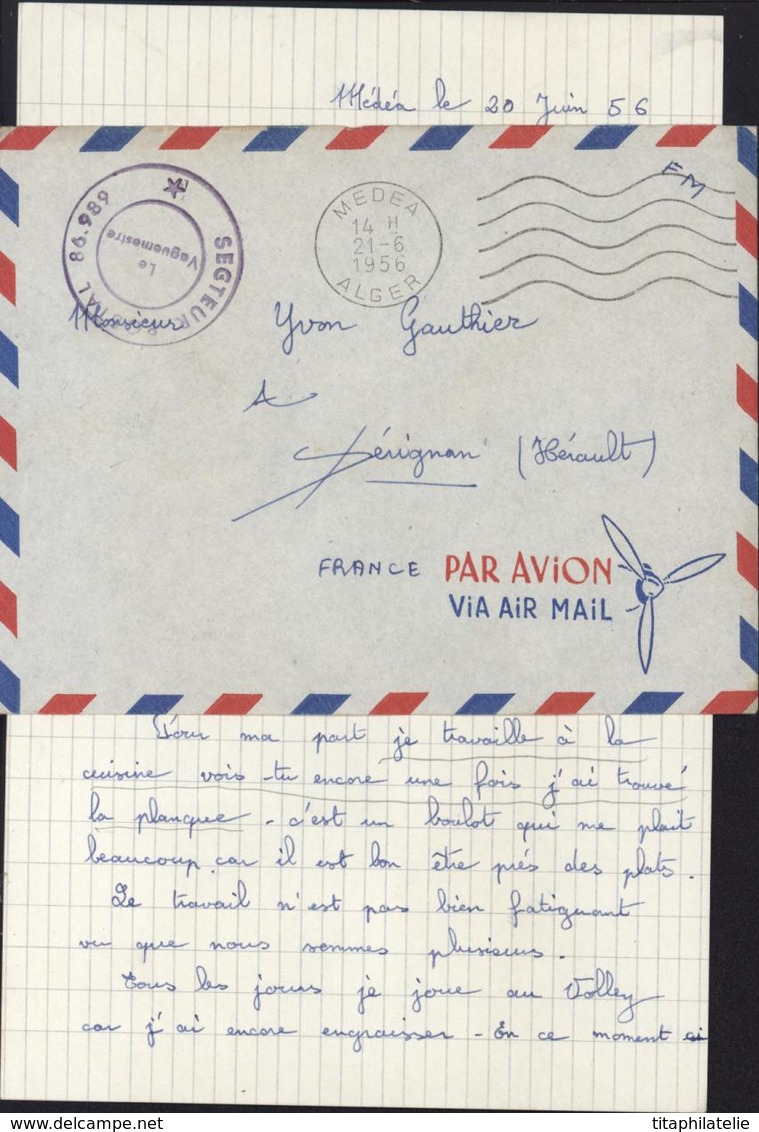 Médéa le 20 Juin 56
FM
SEGTEUR POSTAL 86.989
Le
Vaguemestre
MEDEA
14 H
21-6
1956
ALGER
Monsieur Yvon Gauthier
A
Sérignan (Hérault)
FRANCE PAR AViON
ViA AiR MAiL
Pour ma part je travaille à la
cuisine vois-tu encore une fois j'ai trouvé
la planque - c'est un boulot qui me plait
beaucoup car il est bon être près des plats.
Le travail n'est pas bien fatiguant
vu que nous sommes plusieurs.
Tous les jours je joue au Volley
car j'ai encore engraisser - En ce moment
titaphilatelie